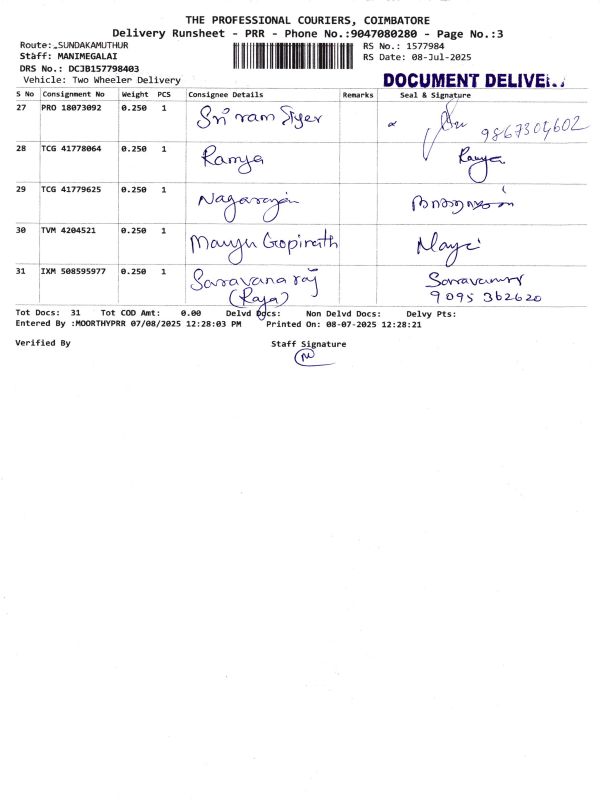 THE PROFESSIONAL COURIERS, COIMBATORE
Delivery Runsheet - PRR - Phone No.:9047080280 - Page No.:3
Route: SUNDAKAMUTHUR
RS No.: 1577984
Staff: MANIMEGALAI
RS Date: 08-Jul-2025
DRS No.: DCJB157798403
Vehicle: Two Wheeler Delivery
DOCUMENT
S No Consignment No Weight PCS Consignee Details Remarks Seal & Signature
27 PRO 18073092 0.250 1 Sri ram Iyer 9867304602
28 TCG 41778064 0.250 1 Ramya Ramya
29 TCG 41779625 0.250 1 Nagarajan நாகராஜன்
30 TVM 4204521 0.250 1 Manju Gopinath
31 IXM 508595977 0.250 1 Saravana raj
(Raja) 9095 362620
Tot Docs: 31 Tot COD Amt: 0.00 Delvd Docs: Non Delvd Docs: Delvy Pts:
Entered By :MOORTHYPRR 07/08/2025 12:28:03 PM Printed On: 08-07-2025 12:28:21
Verified By Staff Signature